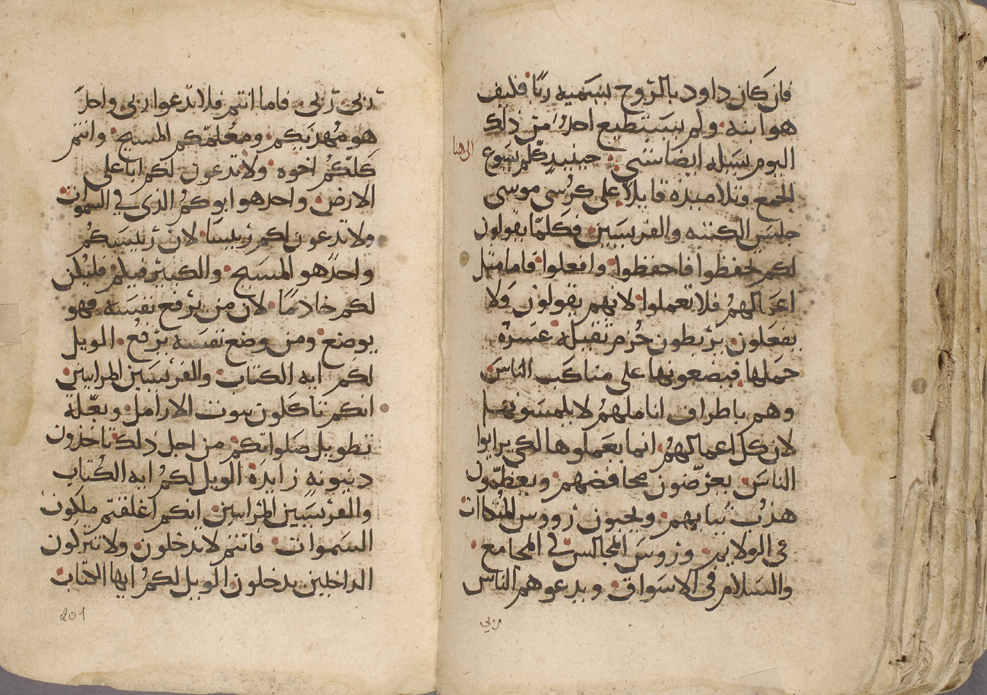 فان كان داود بالروح يسميه ربًا فكيف
هو ابنه ولم يستطيع احدا من ذلك
اليوم يسيله ايضا شي حينيد كلم يسوع
الجمع وتلاميذه قايلا على كرسي موسى
جلس الكتبه والفريسيين فكلما يقولون
لكم احفظوا فاحفظوا وافعلوا فاما مثل
اعمالهم فلا تعملوا لانهم يقولون ولا
يفعلون يربطون حزم ثقيله عسرة
حملها فيضعونها على مناكب الناس
وهم باطراف اناملهم لا يلمسونها
لان كل اعمالهم انما يعملوها لكي يرايوا
الناس يعرضون محافضهم ويعظمون
هدب ثيابهم ويحبون رووس المتكات
في الولايم ورووس المجالس في المجامع
والسلام في الاسواق ويدعوهم الناس
ربي
ربي ربي فاما انتم فلا تدعوا ربي واحد
هو مهديكم ومعلمكم المسيح وانتم
كلكم اخوه ولا تدعون لكم ابا على
الارض واحد هو ابوكم الذي في السموات
ولا تدعون لكم رييسا لان رييسكم
واحد هو المسيح والكبير فيكم فليكن
لكم خادمًا لان من يرفع نفسه فهو
يوضع ومن وضع نفسه يرفع الويل
لكم ايه الكتاب والفريسيين المراييين
انكم تاكلون بيوت الارامل وبعلة
تطويل صلواتكم من اجل ذلك تاخذون
دينونه زايدة الويل لكم ايه الكتاب
والفريسيين المراييين انكم اغلقتم ملكوت
السموات فانتم لا تدخلون ولا تتركون
الداخلين يدخلون الويل لكم ايها الكتاب
201